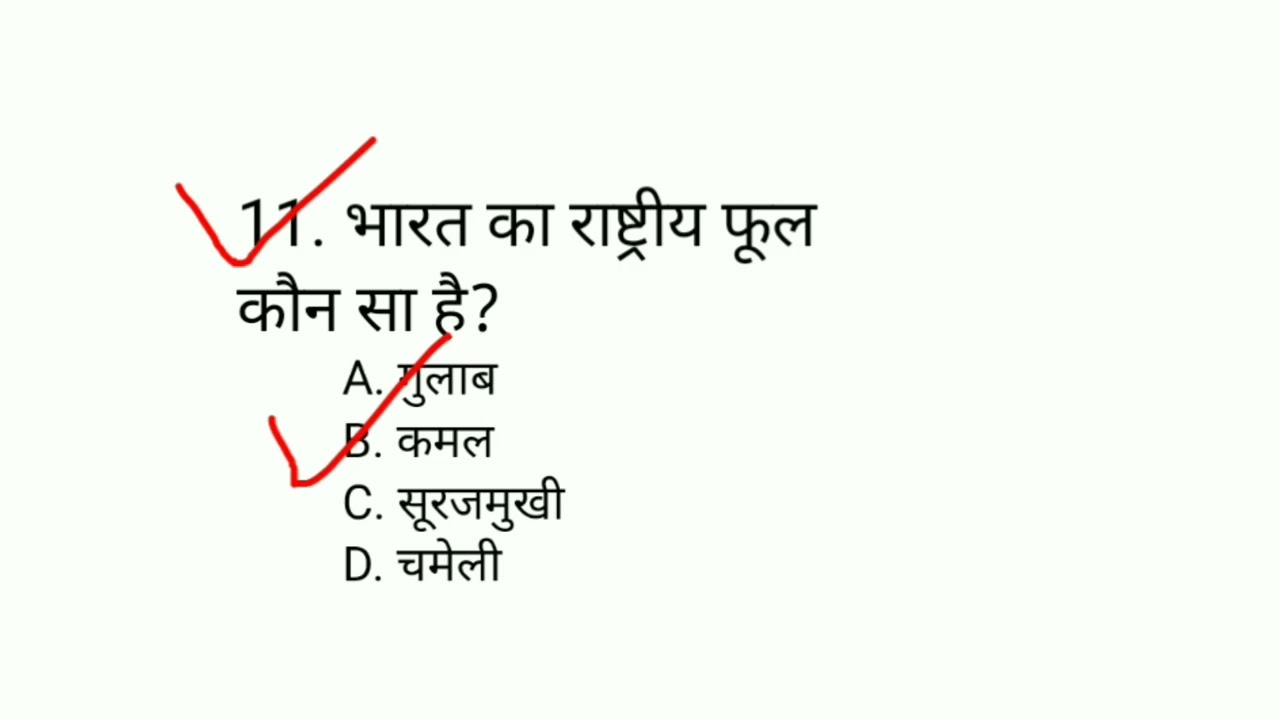 11. भारत का राष्ट्रीय फूल
कौन सा है?
A. गुलाब
B. कमल
C. सूरजमुखी
D. चमेली